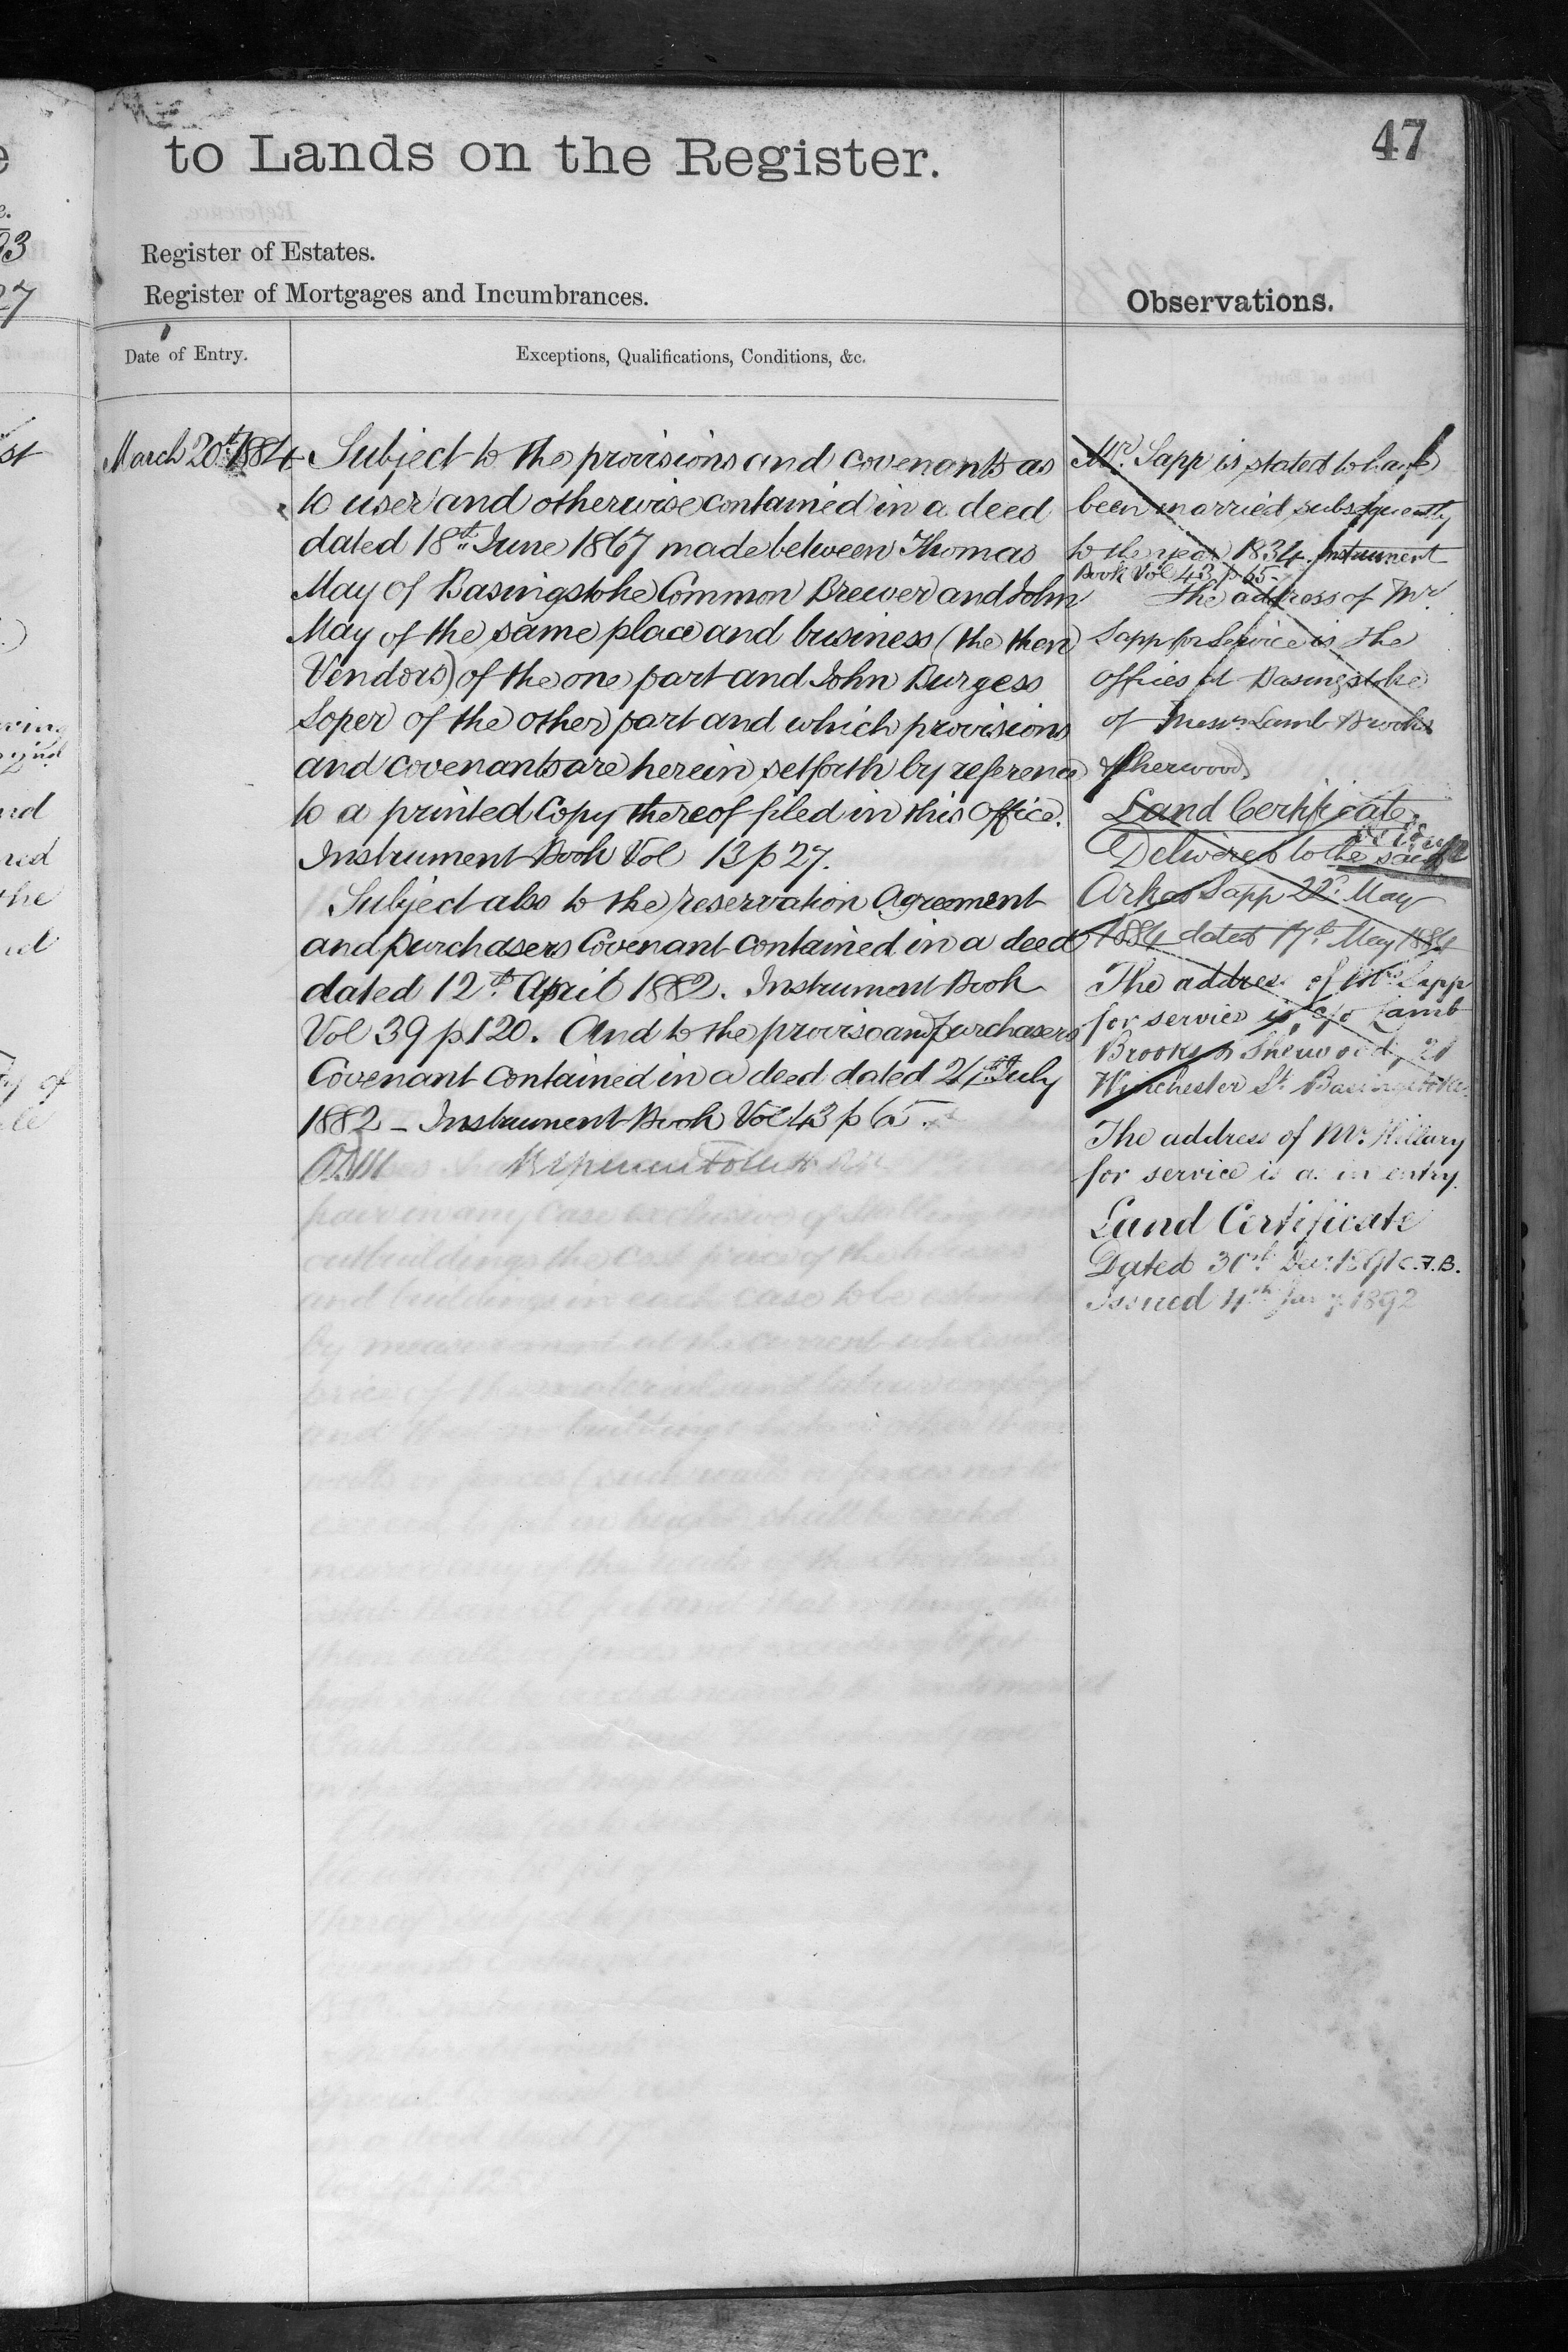 47
to Lands on the Register.
Register of Estates.
Register of Mortgages and Incumbrances.
Observations.
Date of Entry.
Exceptions, Qualifications, Conditions, &c.
March 20th 1884
Subject to the provisions and covenants as
to user and otherwise contained in a deed
dated 18th June 1867 made between Thomas
May of Basingstoke Common Brewer and John
May of the same place and business (the then
Vendors) of the one part and John Burgess
Soper of the other part and which provisions
and covenants are herein setforth by reference
to a printed Copy thereof filed in this Office.
Instrument Book Vol 13 p 27.
Subject also to the reservation Agreement
and purchasers Covenant contained in a deed
dated 12th April 1882. Instrument Book
Vol 39 p 120. And to the proviso and purchasers
Covenant contained in a deed dated 21st July
1882 - Instrument Book Vol 43 p 65.
Mr. Sapp is stated to have
been married subsequently
to the year 1834. Instrument
Book Vol 43 p 65
The address of Mr.
Sapp for Service is the
offices at Basingstoke
of Messrs. Lamb Brooks
& Sherwood
Land Certificate
Delivered to the said
Arkas Sapp 22d. May
1884 dated 17th May 1884
The address of Mrs Sapp
for service is, c/o Lamb
Brooks & Sherwood, 21
Winchester St. Basingstoke.
The address of Mr. Hillary
for service is as in entry.
Land Certificate
Dated 30th Dec. 1891 C.F.B.
Issued 4th Jany 1892